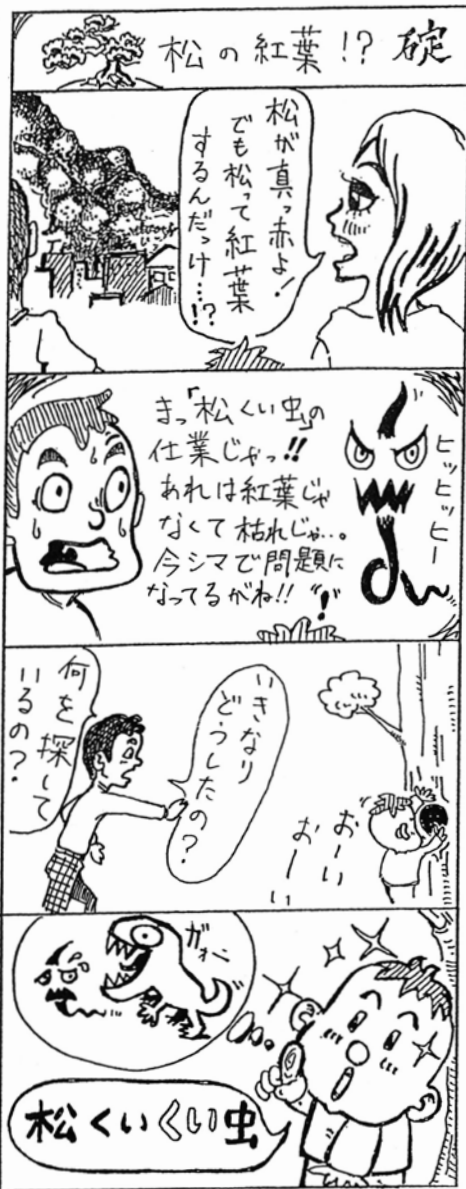 松の紅葉!? 碇
松が真っ赤よ!
でも松って紅葉
するんだっけ…!?
まっ「松くい虫」の
仕業じゃっ!!
あれは紅葉じゃ
なくて枯れじゃ…。
今シマで問題に
なってるがね!!
ヒッヒッヒー
!
いきなり
どうしたの?
何を探して
いるの?
おーい
おーい
ガオー
松くいくい虫